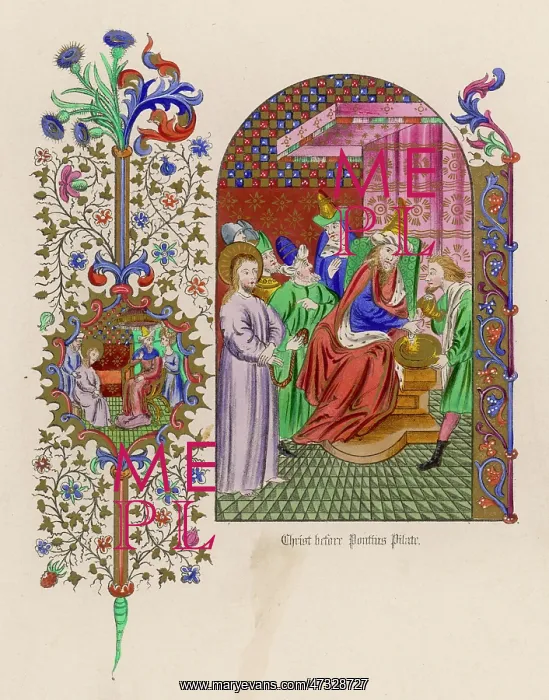 ME
PL
ME
PL
Christ before Pontius Pilate.
www.maryevans.com/47328727